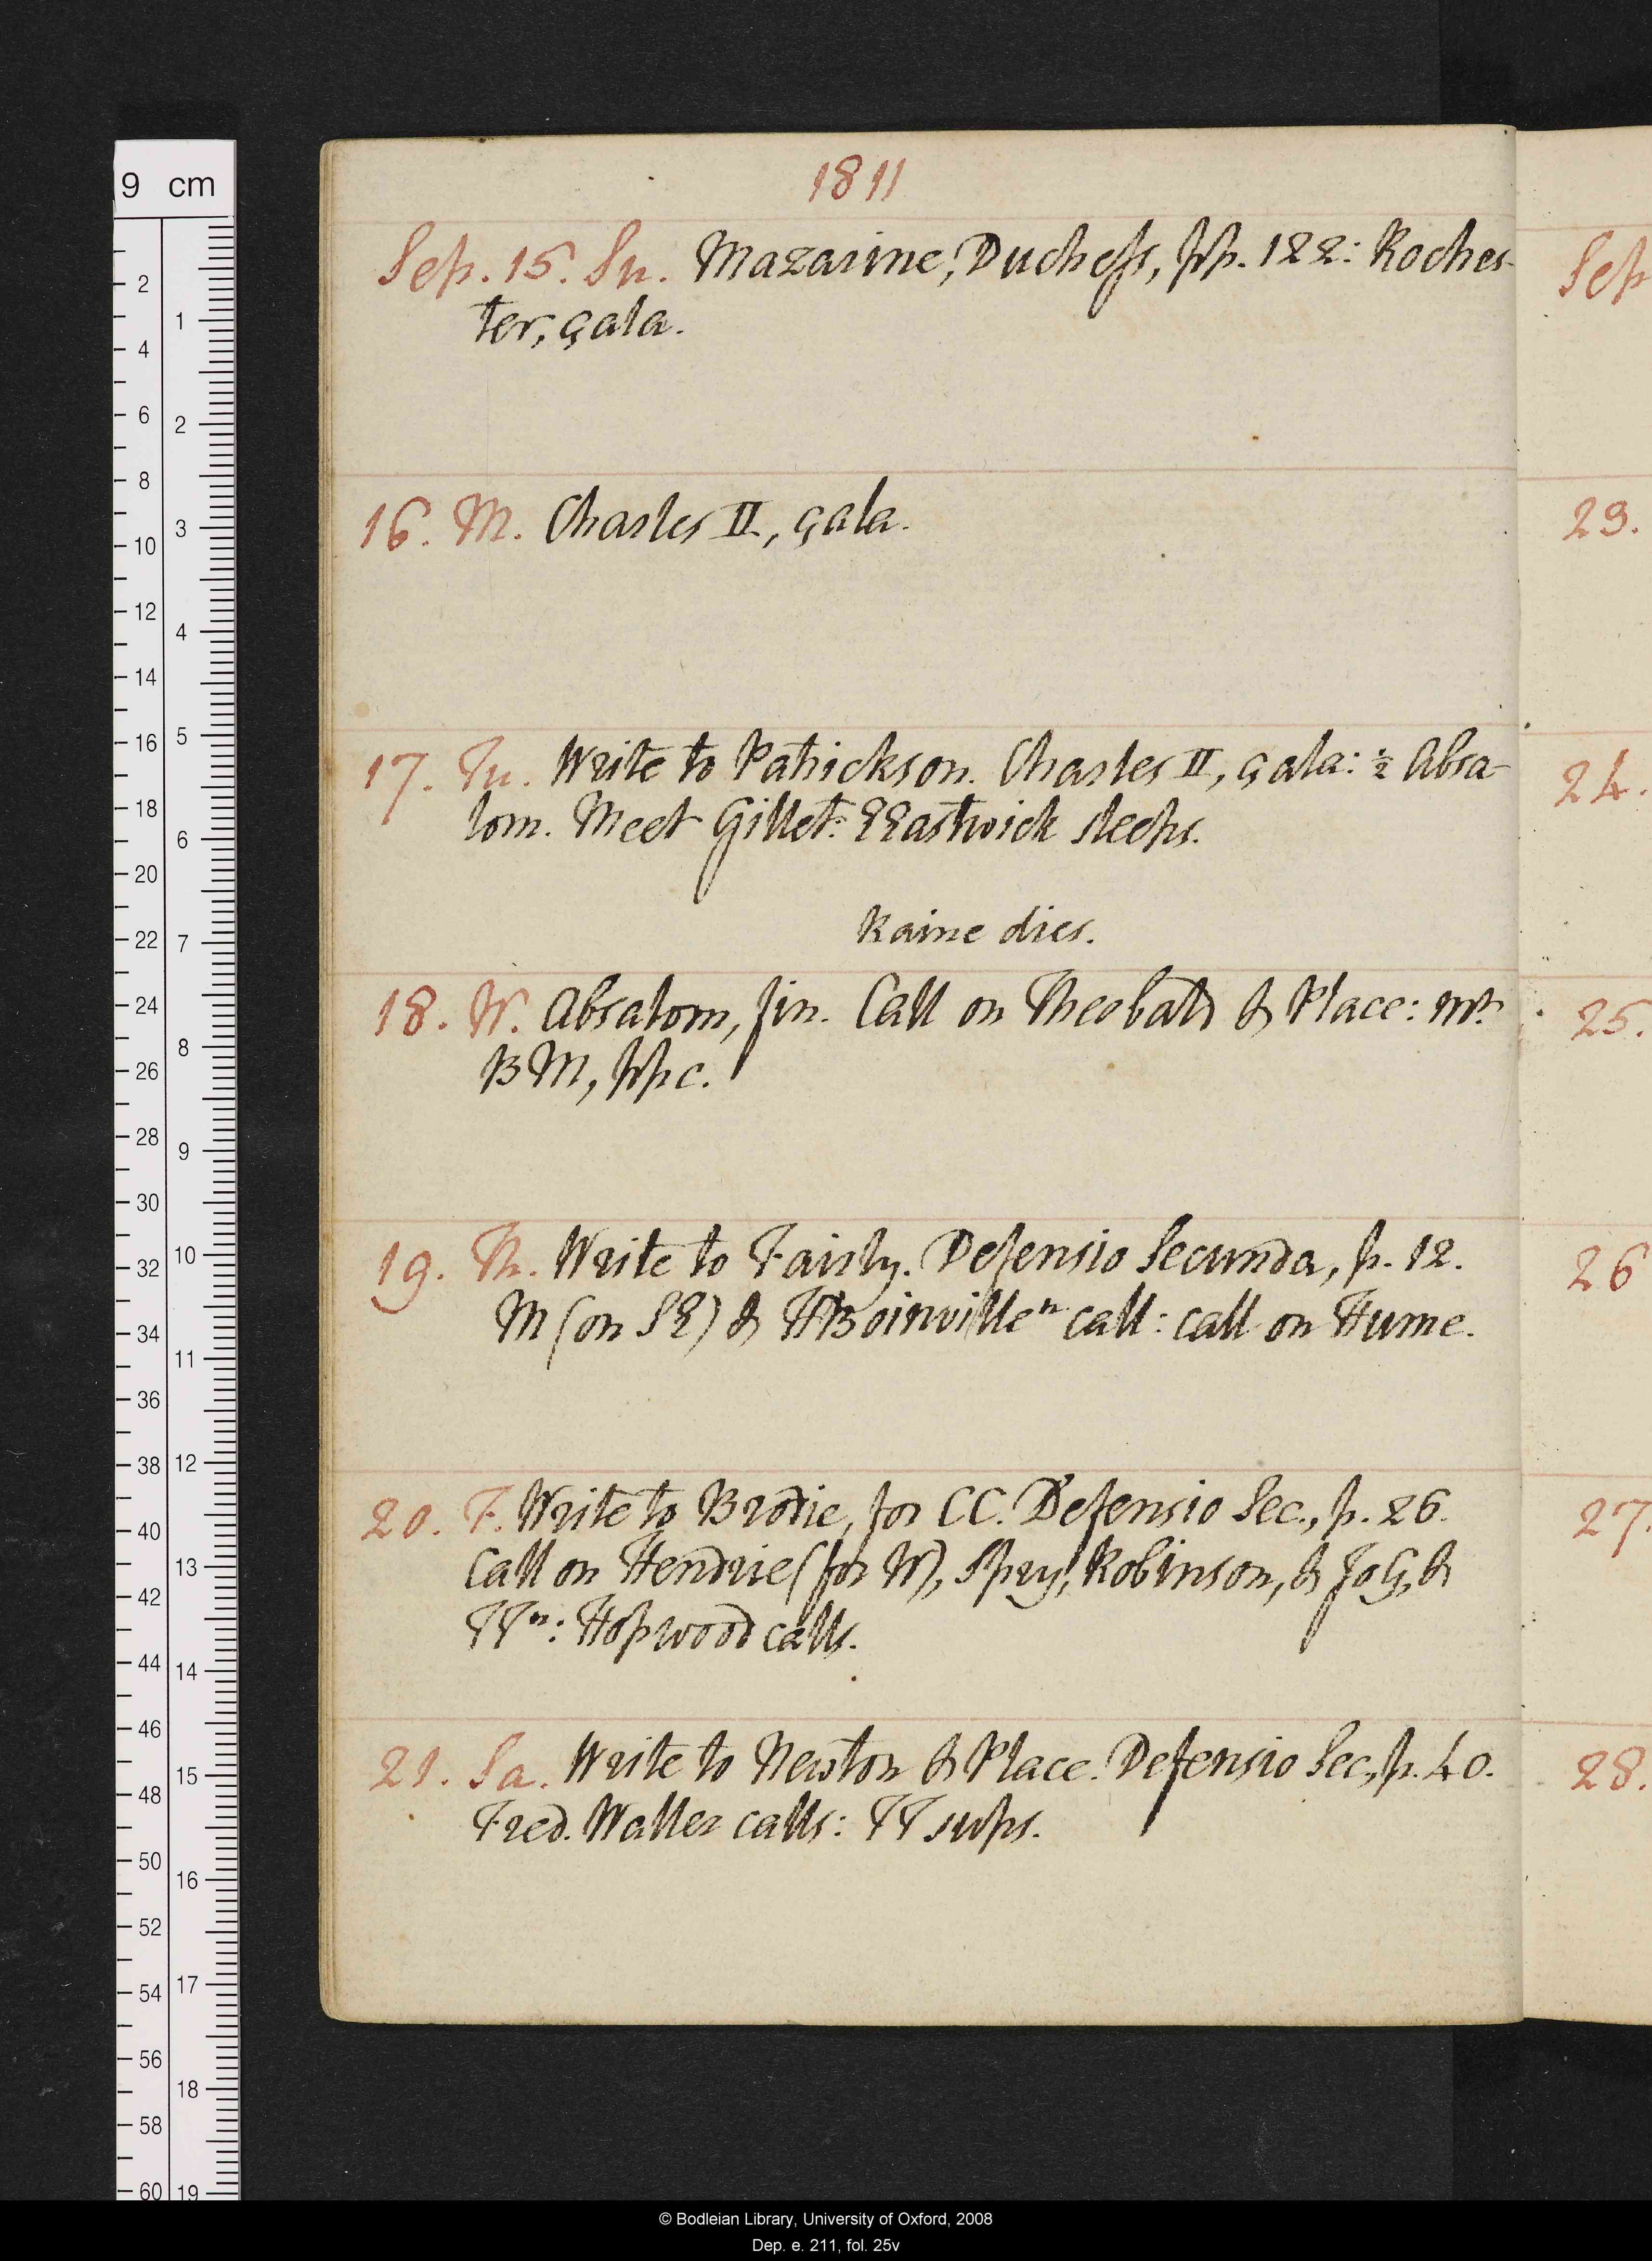 1811
Sep. 15. Su. Mazarine, Duchess, pp. 122: Roches-
ter, çala.
16. M. Charles II, çala.
17. Tu. Write to Patrickson. Charles II, çala: ½ Absa-
lom. Meet Gillet: EEastwick sleeps.
Raine dies.
18. W. Absalom, fin. Call on Theobald & Place: mrs
BM, ppc.
19. Th. Write to Fairly. Defensio Secunda, p. 12.
M (on SE) & HBoinville n call: call on Hume.
20. F. Write to Brodie, for CC. Defensio Sec., p. 26.
Call on Hendrie (for W), Spry, Robinson, & JoG, &
TTn: Hopwood calls.
21. Sa. Write to Newton & Place. Defensio Sec, p. 40.
Fred. Waller calls: TT sups.
Sep
23.
24.
25.
26
27.
28.
9 cm
2
4
6
8
10
12
14
16
18
20
22
24
26
28
30
32
34
36
38
40
42
44
46
48
50
52
54
56
58
60
1
2
3
4
5
6
7
8
9
10
11
12
13
14
15
16
17
18
19
© Bodleian Library, University of Oxford, 2008
Dep. e. 211, fol. 25v